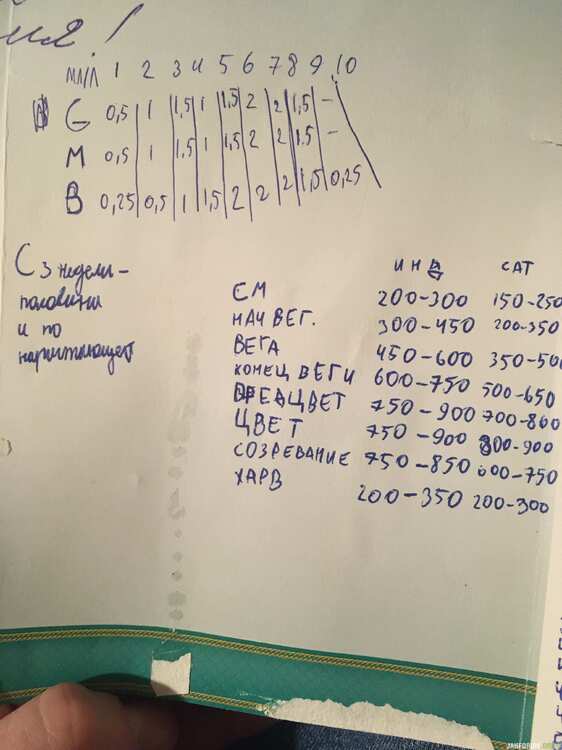 МЛ/Л 1 2 3 4 5 6 7 8 9 10
G 0,5 1 1,5 1 1,5 2 2 1,5 -
M 0,5 1 1,5 1 1,5 2 2 1.5 -
B 0,25 0,5 1 1,5 2 2 2 1,5 0,25
С 3 недели-
половины
и по
нарастающей
ИНД САТ
СМ 200-300 150-250
НАЧ ВЕГ. 300-450 200-350
ВЕГА 450-600 350-500
КОНЕЦ ВЕГИ 600-750 500-650
ПРЕДЦВЕТ 750-900 700-800
ЦВЕТ 750-900 800-900
СОЗРЕВАНИЕ 750-850 600-750
ХАРВ 200-350 200-300